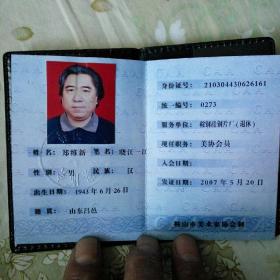 姓名 郑维新 笔名 晓江一江
性别 男 民族 汉
出生日期 1943年6月26日
籍贯 山东昌邑
身份证号: 210304430626161
统一编号: 0273
服务单位: 鞍钢硅钢片厂(退休)
现任职务: 美协会员
入会日期:
发证日期: 2007年5月20日
鞍山市美术家协会制